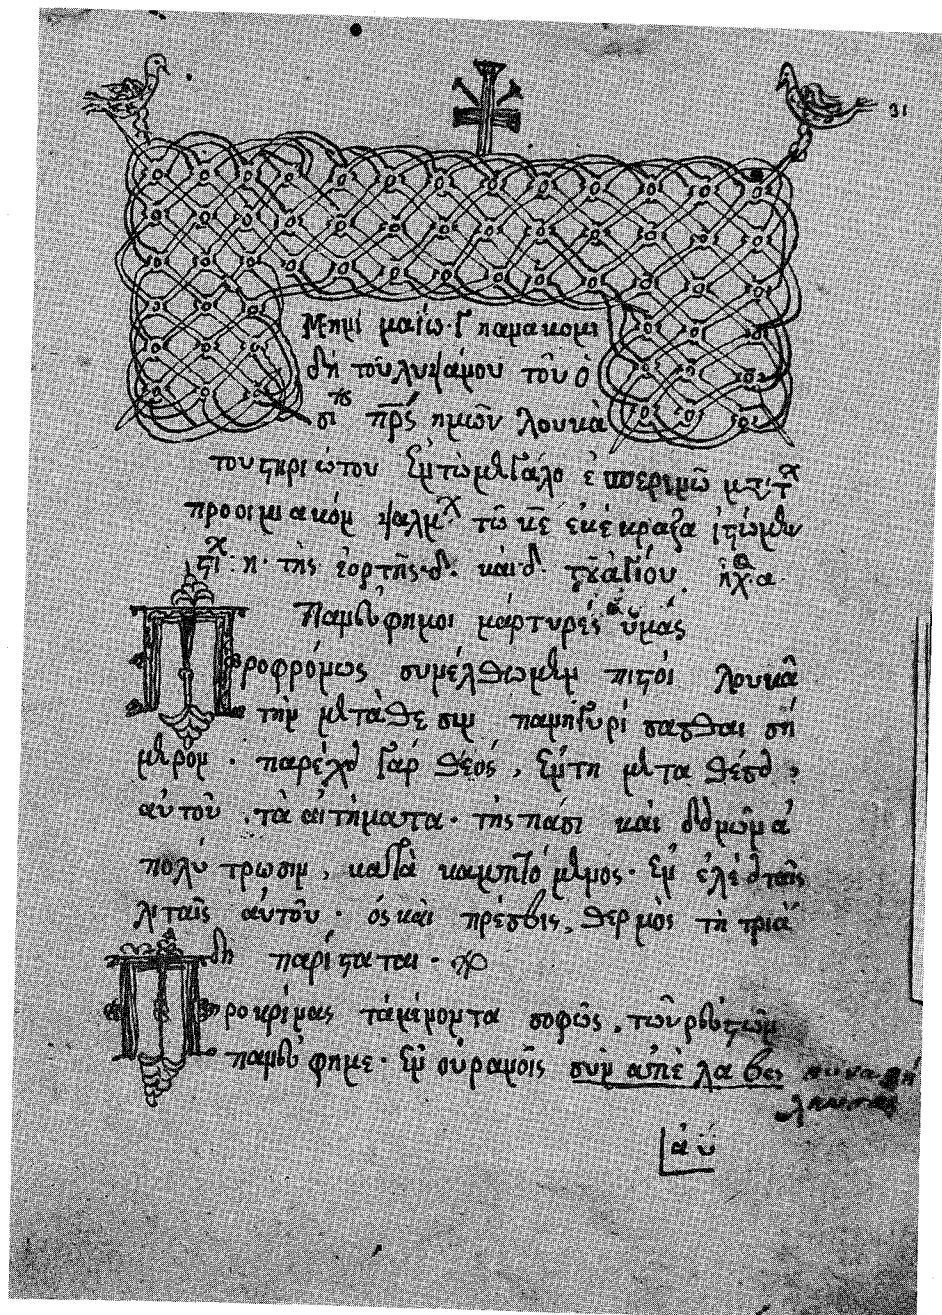 31
Μηνὶ μαΐω · Γ παρακομι
δὴ τοῦ λυψάνου τοῦ ὁ
σι πρς ημῶν λουκᾶ
του στηριώτου
προοιμιακόν ψαλμ τῶ κε ἐκέκραξα
στιχ · η · τῆς ἑορτῆς · δ · καὶ δ · του ἁγίου ἠχ · α
Πανεύφημοι μάρτυρες ὑμάς
Προφρόνως συνέλθωμεν πιστοί λουκᾶ
τὴν μετάθεσιν πανηγυρί σασθαι σή
μερον · παρέχει γάρ θεός, ἐν τη μεταθέσει,
αὐτοῦ, τὰ αἰτήματα · τῆς πασι καὶ δεινῶν ἀ
πολύτρωσιν, καλλὰ καμπτόμενος · ἐν
λιταῖς αὐτοῦ · ός καὶ πρέσβις, θερμὸς τὴ τριά
δη παρίσταται ·
Προκρίνας τὰ μένοντα σοφῶς, τῶν ρεόντων
πανεύφημε · ἐν οὐρανοῖς συναπέλαβες
αὐ